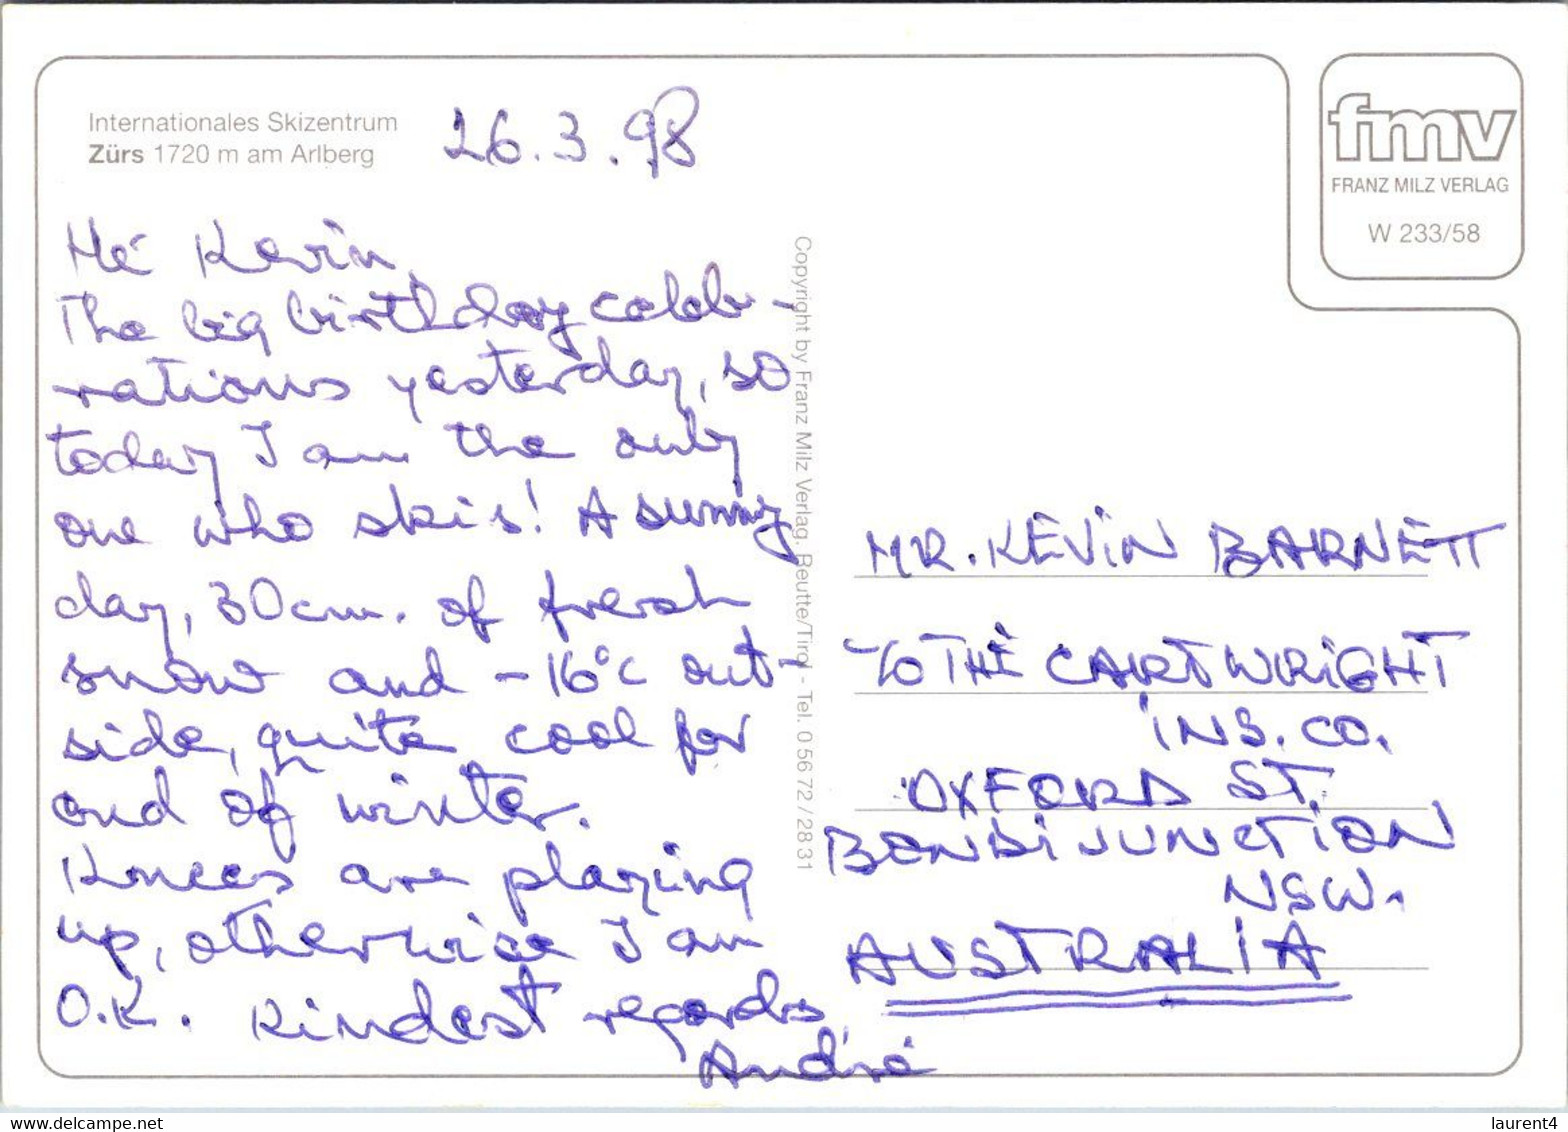 Internationales Skizentrum
Zürs 1720 m am Arlberg
26.3.98
Hé Kevin,
The big birthday celeb-
rations yesterday, so
today I am the only
one who skis! A sunny
day, 30cm. of fresh
snow and -16°C out-
side, quite cool for
end of winter.
Knees are playing
up, otherwise I am
O.K. Kindest regards,
André
Copyright by Franz Milz Verlag, Reutte/Tirol - Tel. 0 56 72 / 28 31
fmv
FRANZ MILZ VERLAG
W 233/58
MR. KEVIN BARNETT
c/o THE CARTWRIGHT
INS. CO.
OXFORD ST.
BONDI JUNCTION
NSW.
AUSTRALIA
www.delcampe.net
laurent4